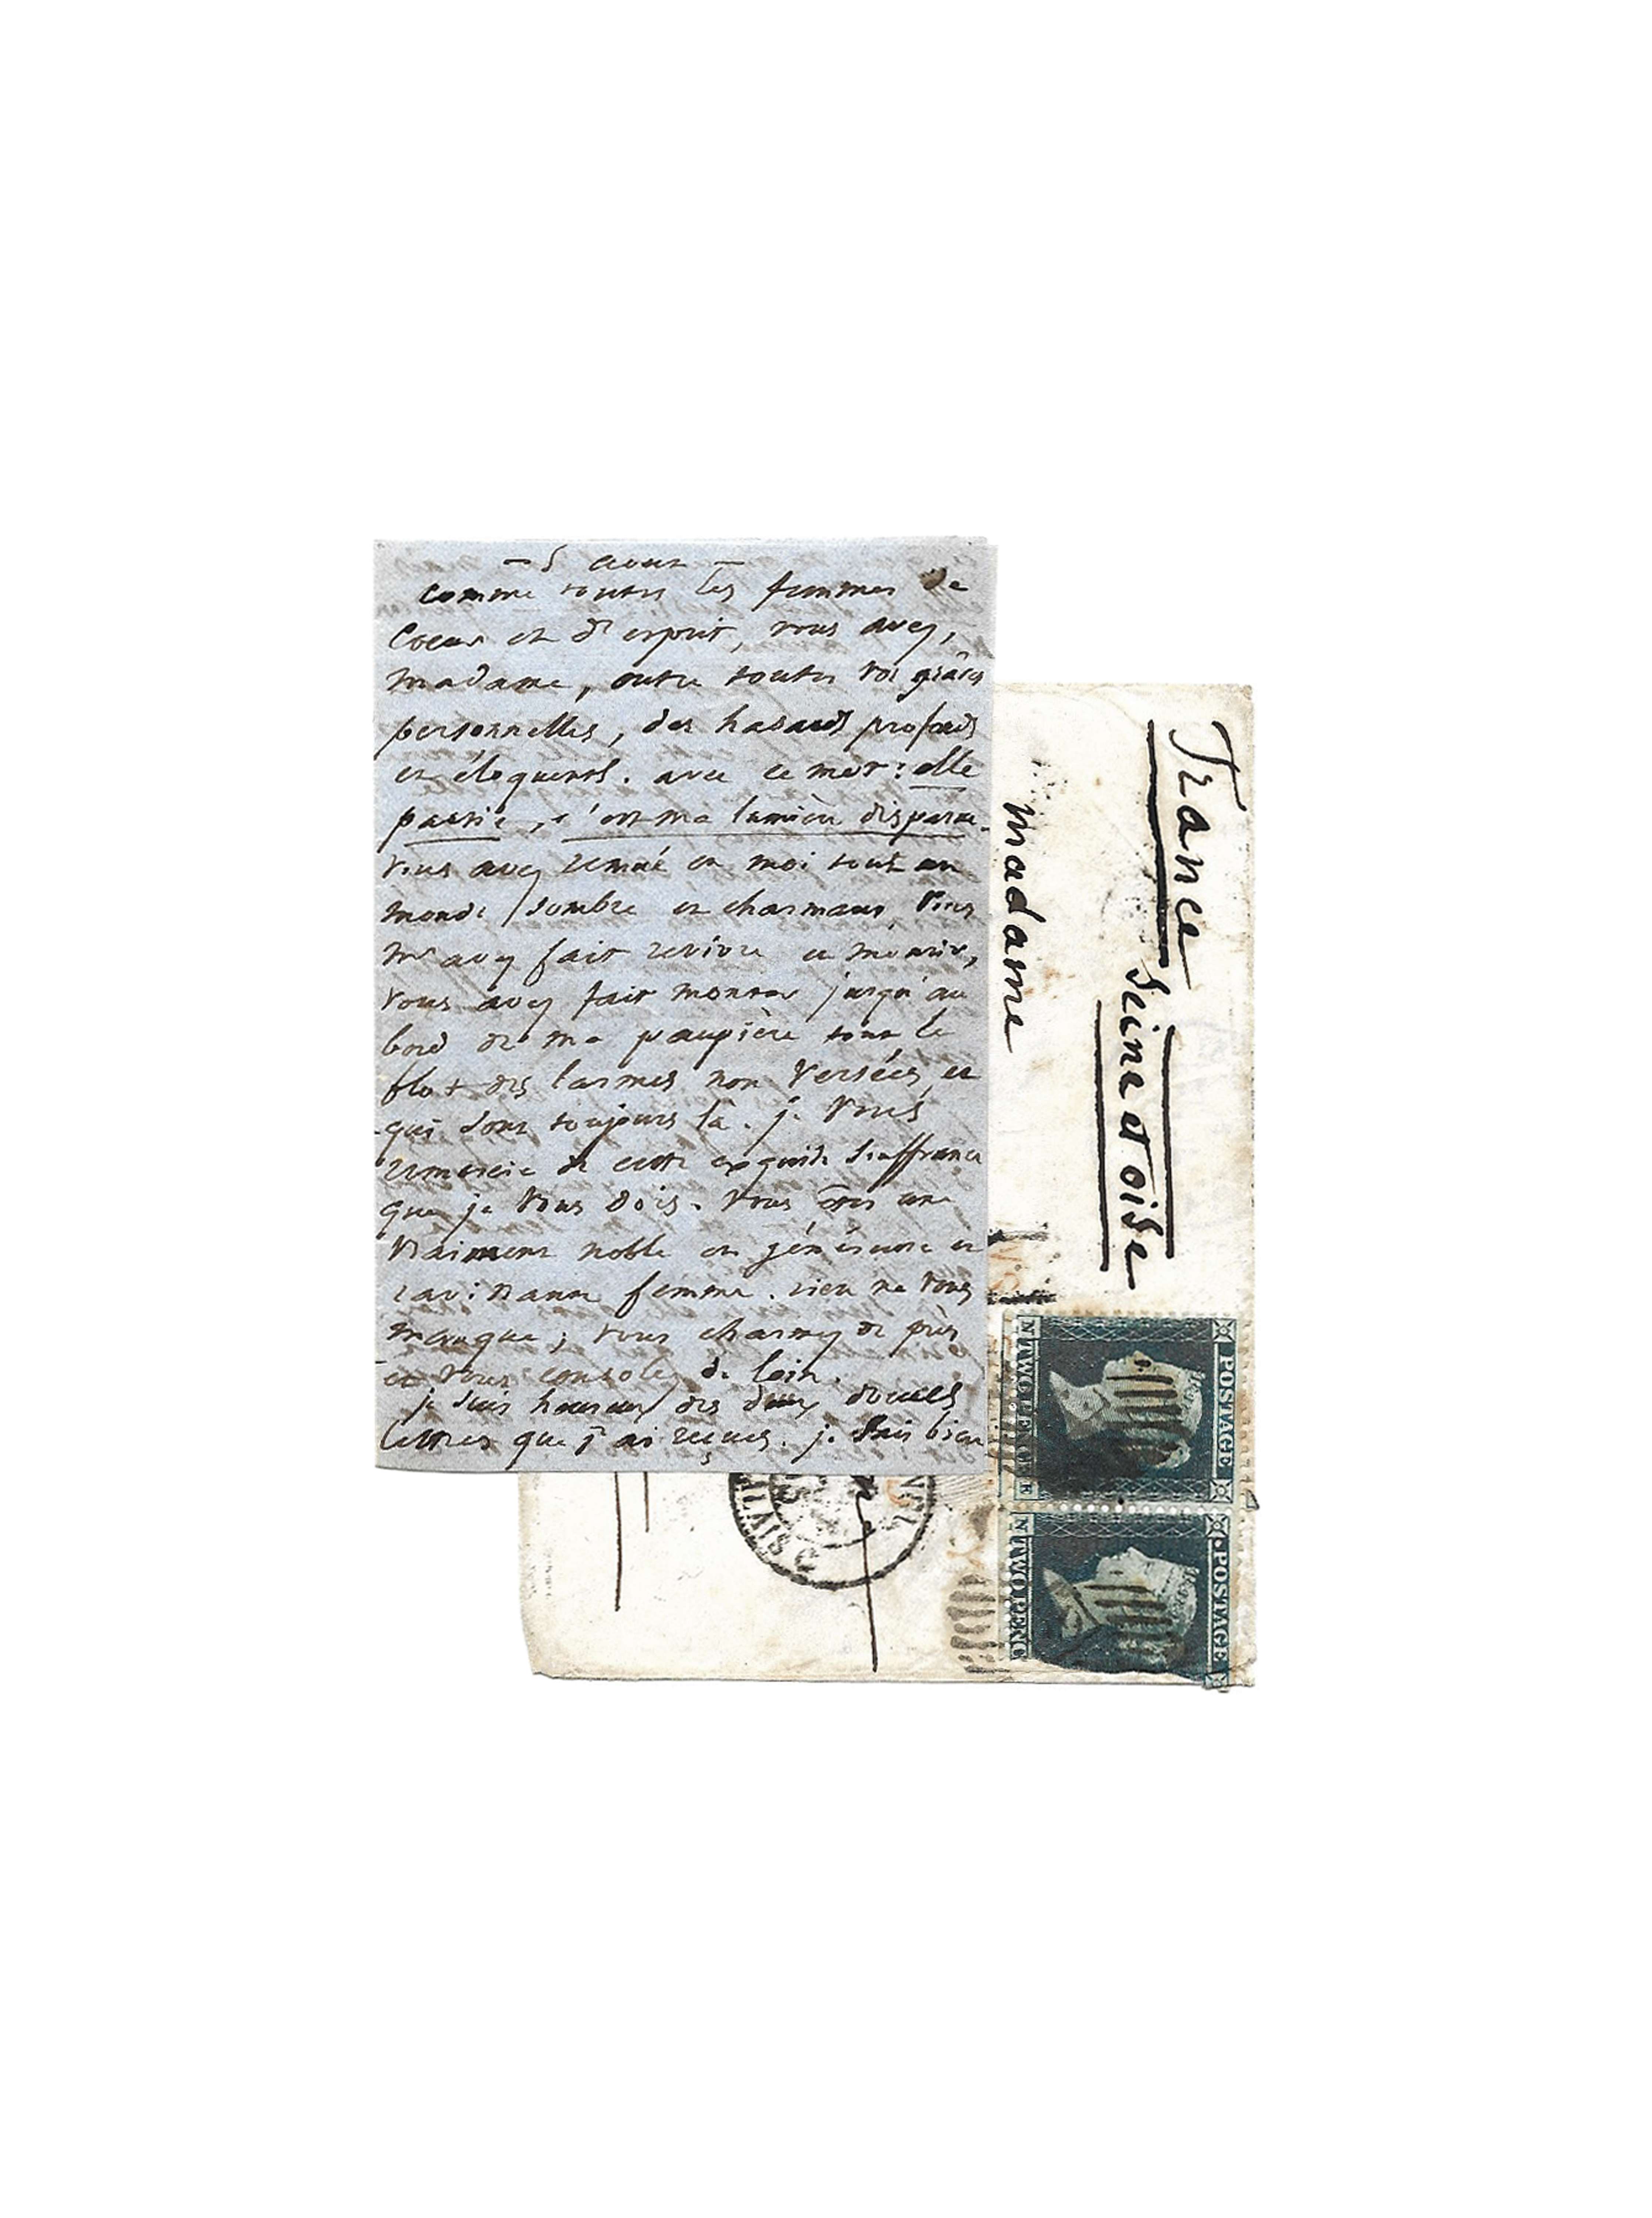 – 5 aout –
comme toutes les femmes de
coeur et d'esprit, vous avez,
madame, outre toutes vos grâces
personnelles, des hasards profonds
et éloquents. avec ce mot : elle
partie, c'est ma lumière disparue.
vous avez remué en moi tout un
monde sombre et charmant. Vous
m'avez fait revivre et mourir,
vous avez fait monter jusqu'au
bord de ma paupière tout le
flot des larmes non versées et
qui sont toujours là. je vous
remercie de cette exquise souffrance
que je vous dois. Vous êtes une
vraiment noble et généreuse et
ravissante femme. rien ne vous
manque ; vous charmez de près
et vous consolez de loin.
je suis heureux des deux douces
lettres que j'ai reçues. je sais bien
France
Seine et oise
madame
POSTAGE
TWO PENCE
POSTAGE
TWO PENC